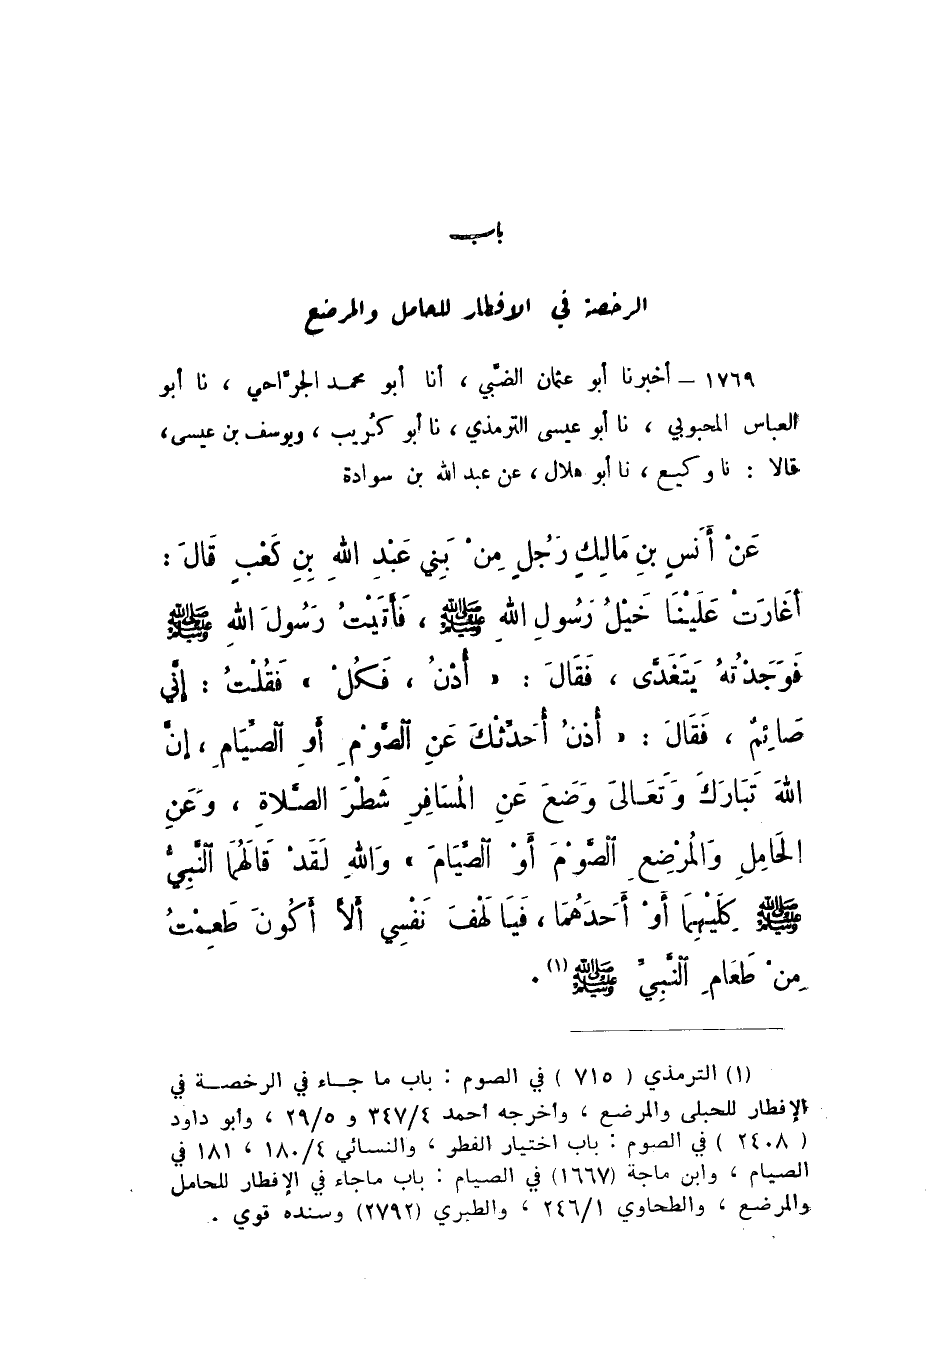 باب
الرخصة في الافطار للحامل والمرضع
١٧٦٩ – أخبرنا أبو عثمان الضبّي ، أنا أبو محمد الجرّاحي ، نا أبو
العباس المحبوبي ، نا أبو عيسى الترمذي ، نا أبو كُريب ، ويوسف بن عيسى ،
قالا : نا وكيع ، نا أبو هلال ، عن عبد الله بن سوادة
عَنْ أَنَسِ بنِ مَالِكٍ رَجُلٍ مِنْ بَنِي عَبْدِ اللهِ بنِ كَعْبٍ قَالَ :
أَغَارَتْ عَلَيْنَا خَيْلُ رَسُولِ اللهِ ﷺ ، فَأَتَيْتُ رَسُولَ اللهِ ﷺ
فَوَجَدْتُهُ يَتَغَدَّى ، فَقَالَ : « أُدْنُ ، فَكُلْ » فَقُلْتُ : إِنِّي
صَائِمٌ ، فَقَالَ : « أُدْنُ أُحَدِّثْكَ عَنِ الصَّوْمِ أَوِ الصِّيَامِ ، إِنَّ
اللهَ تَبَارَكَ وَتَعَالىَ وَضَعَ عَنِ المُسَافِرِ شَطْرَ الصَّلاةِ ، وَعَنِ
الحَامِلِ وَالمُرْضِعِ الصَّوْمَ أَوْ الصِّيَامَ » وَاللهِ لَقَدْ قَالَهُمَا النَّبِيُّ
ﷺ كِلَيْهِمَا أَوْ أَحَدَهُمَا ، فَيَا لَهْفَ نَفْسِي أَلاَّ أَكُونَ طَعِمْتُ
مِنْ طَعَامِ النَّبِيِّ ﷺ (١) .
(١) الترمذي ( ٧١٥ ) في الصوم : باب ما جاء في الرخصة في
الإفطار للحبلى والمرضع ، وأخرجه أحمد ٣٤٧/٤ و ٢٩/٥ ، وأبو داود
( ٢٤٠٨ ) في الصوم : باب اختيار الفطر ، والنسائي ١٨٠/٤ ، ١٨١ في
الصيام ، وابن ماجة (١٦٦٧) في الصيام : باب ماجاء في الإفطار للحامل
والمرضع ، والطحاوي ٢٤٦/١ ، والطبري (٢٧٩٢) وسنده قوي .